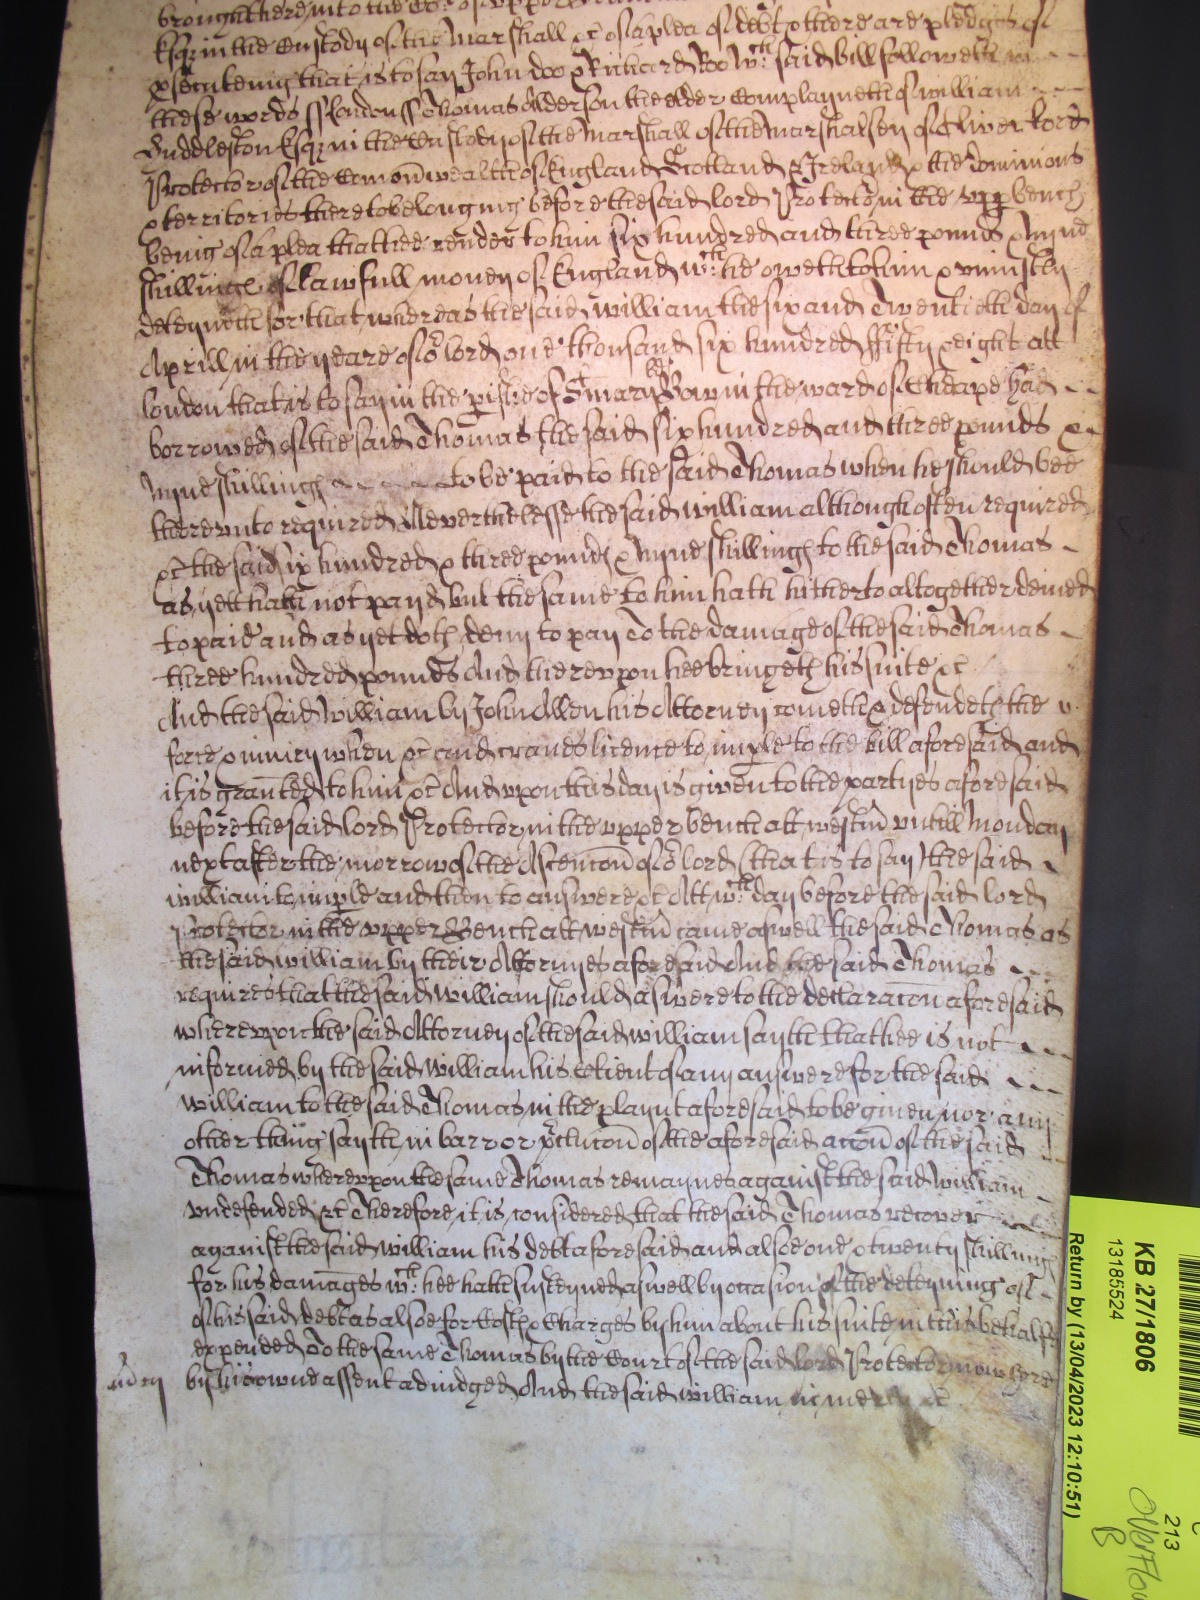 brought here into the Co: of upper
Esqr in the Custody of the Marshall &c of a plea of debt & there are pledges of
psecuteing that is to say John doo & Richard Roo wch said bill followeth in
these words ss London ss Thomas Alderson the elder Complayneth of William
Huddleston Esqr in the Custody of the Marshall of the Marshalsey of Oliver Lord
Protector of the Comonwealth of England Scotland & Ireland & the dominions
& territories thereto belonging before the said lord Protector in the upp bench
being of a plea that hee render to him six hundred and three pounds & Nyne
shillings of lawfull money of England wch he oweth to him & uniustly
deteyneth for that whereas the said William the six and Twentieth day of
Aprill in the yeare of or lord one thousand six hundred ffifty & eight att
london that is to say in the pishe of St mary Bow in the ward of Cheape had
borrowed of the said Thomas the said six hundred and three pounds &
Nyne shillings to be paid to the said Thomas when he should bee
thereunto required Neverthelesse the said William although often required
&c the said six hundred & three pounds & Nyne shillings to the said Thomas
as yett hath not payd but the same to him hath hitherto altogether denied
to paie and as yet doth deny to pay To the damage of the said Thomas
three hundred pounds And thereupon hee bringeth his suite &c
And the said William by John Allen his Attorney cometh & defendeth the
force & iniury when &c and craves licence to imple to the bill aforesaid and
it is granted to him &c And upon this day is given to the partyes aforesaid
before the said lord Protector in the upper bench att westm untill Monday
next after the morrow of the Ascencon of or lord (that is to say) the said
william to imple and then to answere &c Att wch day before the said lord
Protector in the upper Bench att westm came aswell the said Thomas as
the said william by their Attornyes aforesaid And the said Thomas
requires that the said William should aswere to the declaracon aforesaid
whereupon the said Attorney of the said william sayth that hee is not
informed by the said William his Client of any answere for the said
William to the said Thomas in the playnt aforesaid to be given nor any
other thing sayth in barr or pclucon of the aforesaid accon of the said
Thomas whereupon the same Thomas remaynes against the said William
undefended &c Therefore it is considered that the said Thomas recover
against the said William his debt aforesaid and alsoe one & twenty shillings
for his damages wch hee hath susteyned aswell by occasion of the deteyning of
of his said debt as alsoe for Costs & Charges by him about his suite in this behalfe
expended To the same Thomas by the Court of the said lord Protector now here
by his owne assent adiudged And the said William in mercy &c
KB 271/1806
13185524
Return by (13/04/2023 12:10:51)
213
Overflow
B